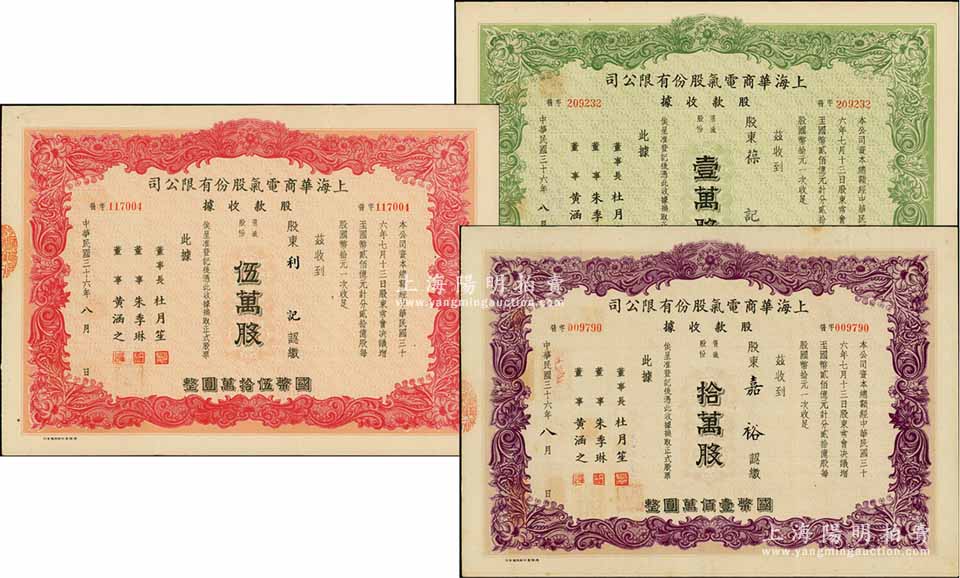 司公限有份股氣電商華海上
據收款股
備字 117004
備字 117004
本公司資本總額經中華民國三十
六年七月十三日股東常會決議增
至國幣貳佰億元計分貳拾億股每
股國幣拾元一次收足
茲收到
股東利 記 認繳
股份
伍萬股
俟呈准登記後憑此收據換取正式股票
此據
董事長 杜月笙
董事 朱季琳
董事 黃涵之
中華民國三十六年八月 日
整圓萬拾伍幣國
司公限有份股氣電商華海上
據收款股
備字 209232
備字 209232
本公司資本總額經中華民國三十
六年七月十三日股東常會決議增
至國幣貳佰億元計分貳
股國幣拾元一次收足
茲收到
股東葆 記
股份
壹萬股
俟呈准登記後憑此收據換取正
此據
董事長 杜月
董事 朱季
董事 黃涵
中華民國三十六年八
司公限有份股氣電商華海上
據收款股
備字 009790
備字 009790
本公司資本總額經中華民國三十
六年七月十三日股東常會決議增
至國幣貳佰億元計分貳拾億股每
股國幣拾元一次收足
茲收到
股東嘉 裕 認繳
股份
拾萬股
俟呈准登記後憑此收據換取正式股票
此據
董事長 杜月笙
董事 朱季琳
董事 黃涵之
中華民國三十六年八月 日
整圓萬佰壹幣國
上海陽明拍賣
www.yangmingauction.com
上海陽明拍賣
www.yangmingauction.com